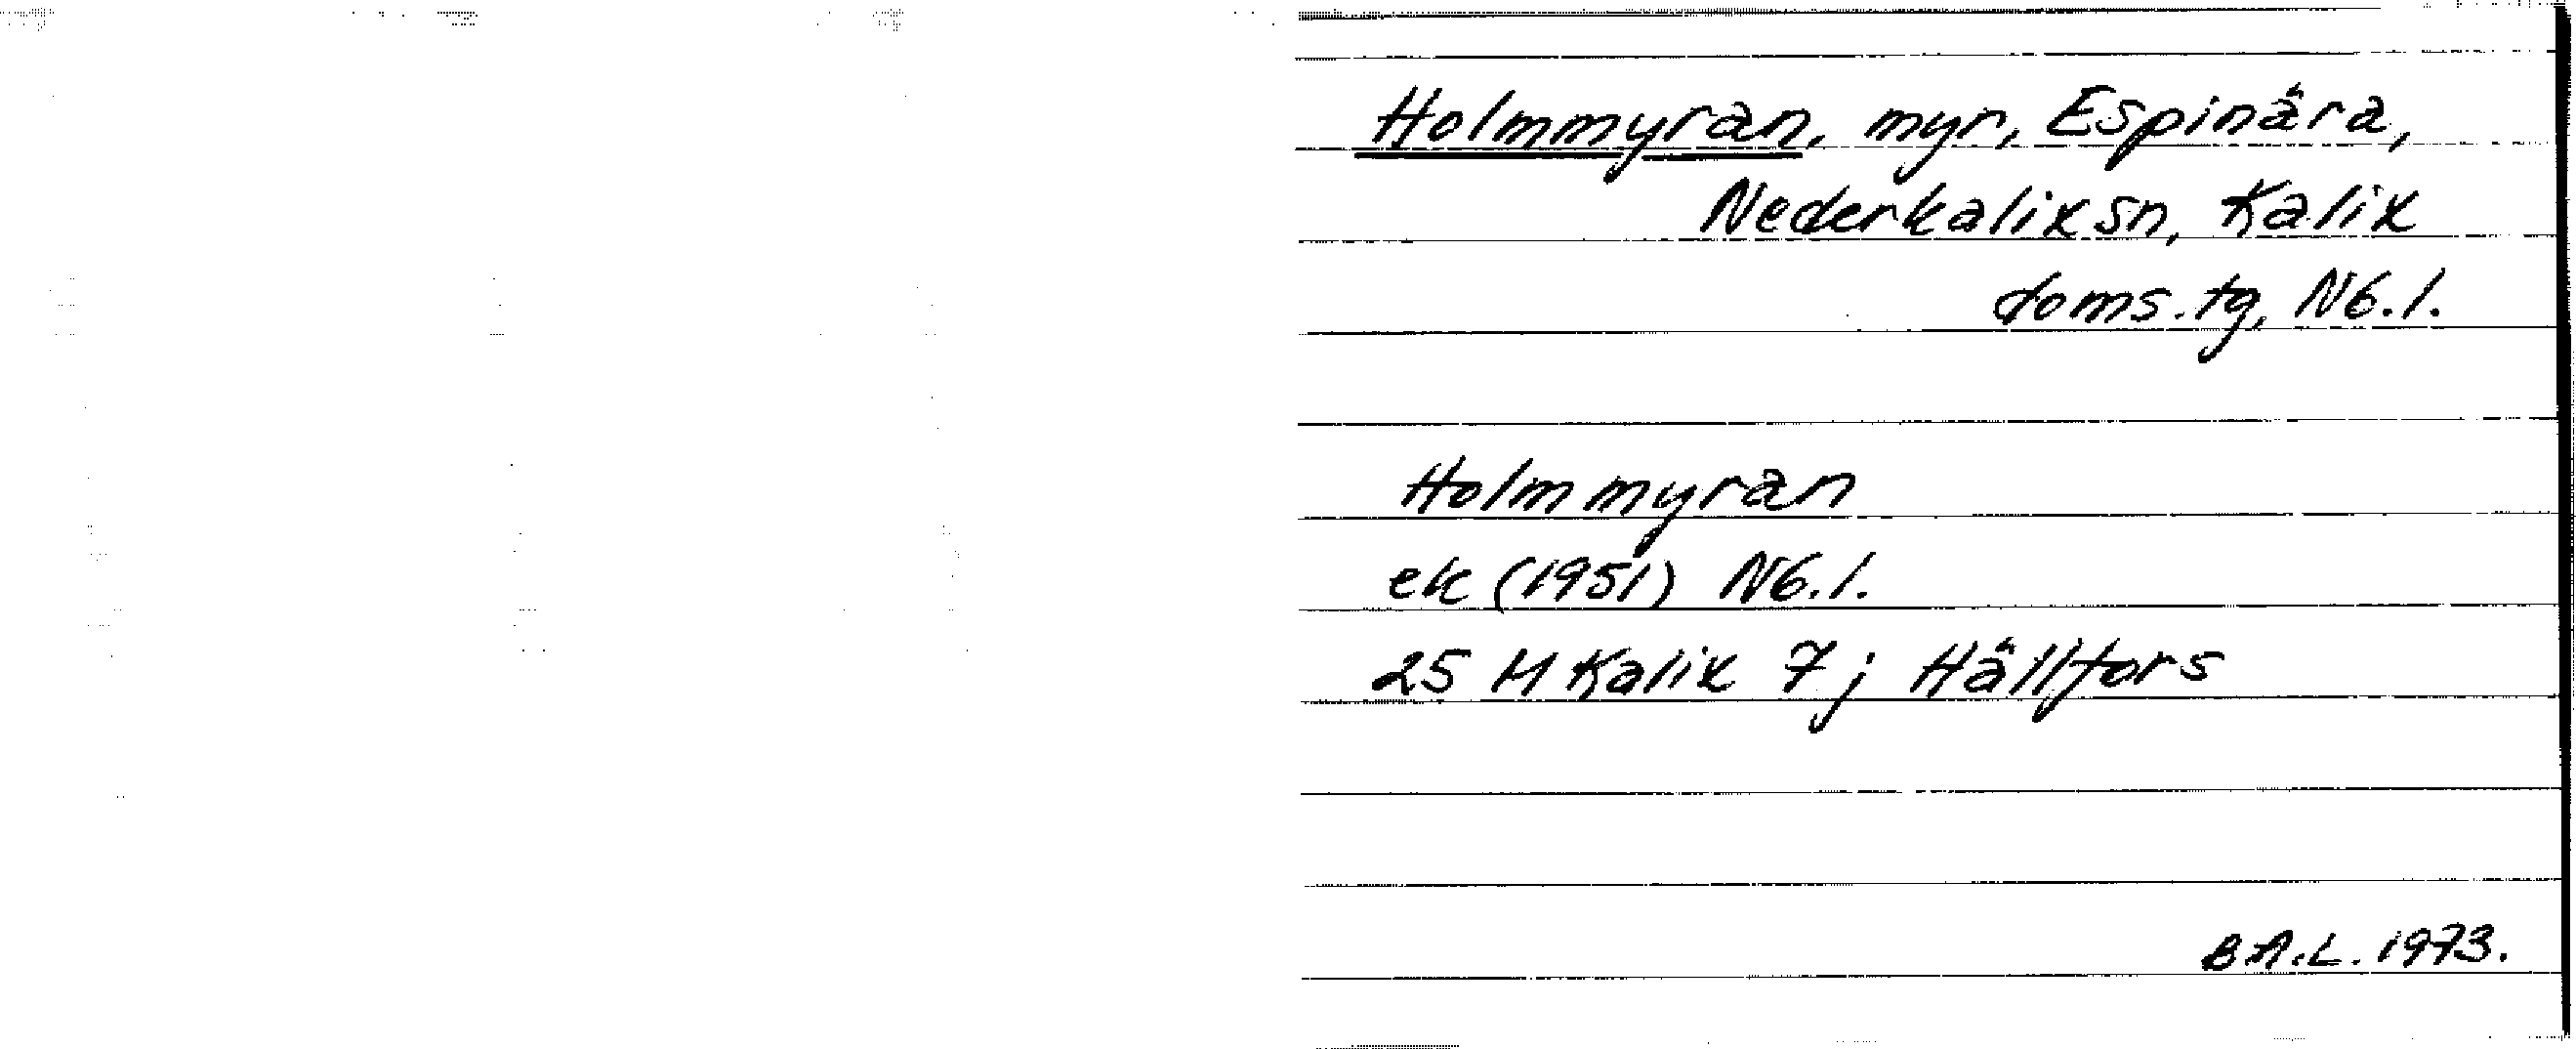 Holmmyran, myr, Espinära,
Nederkalix sn, Kalix
doms. tg, Nb. l.
Holmmyran
ek (1951) Nb. l.
25 M Kalix 7 j Hällfors
B A. L. 1973.